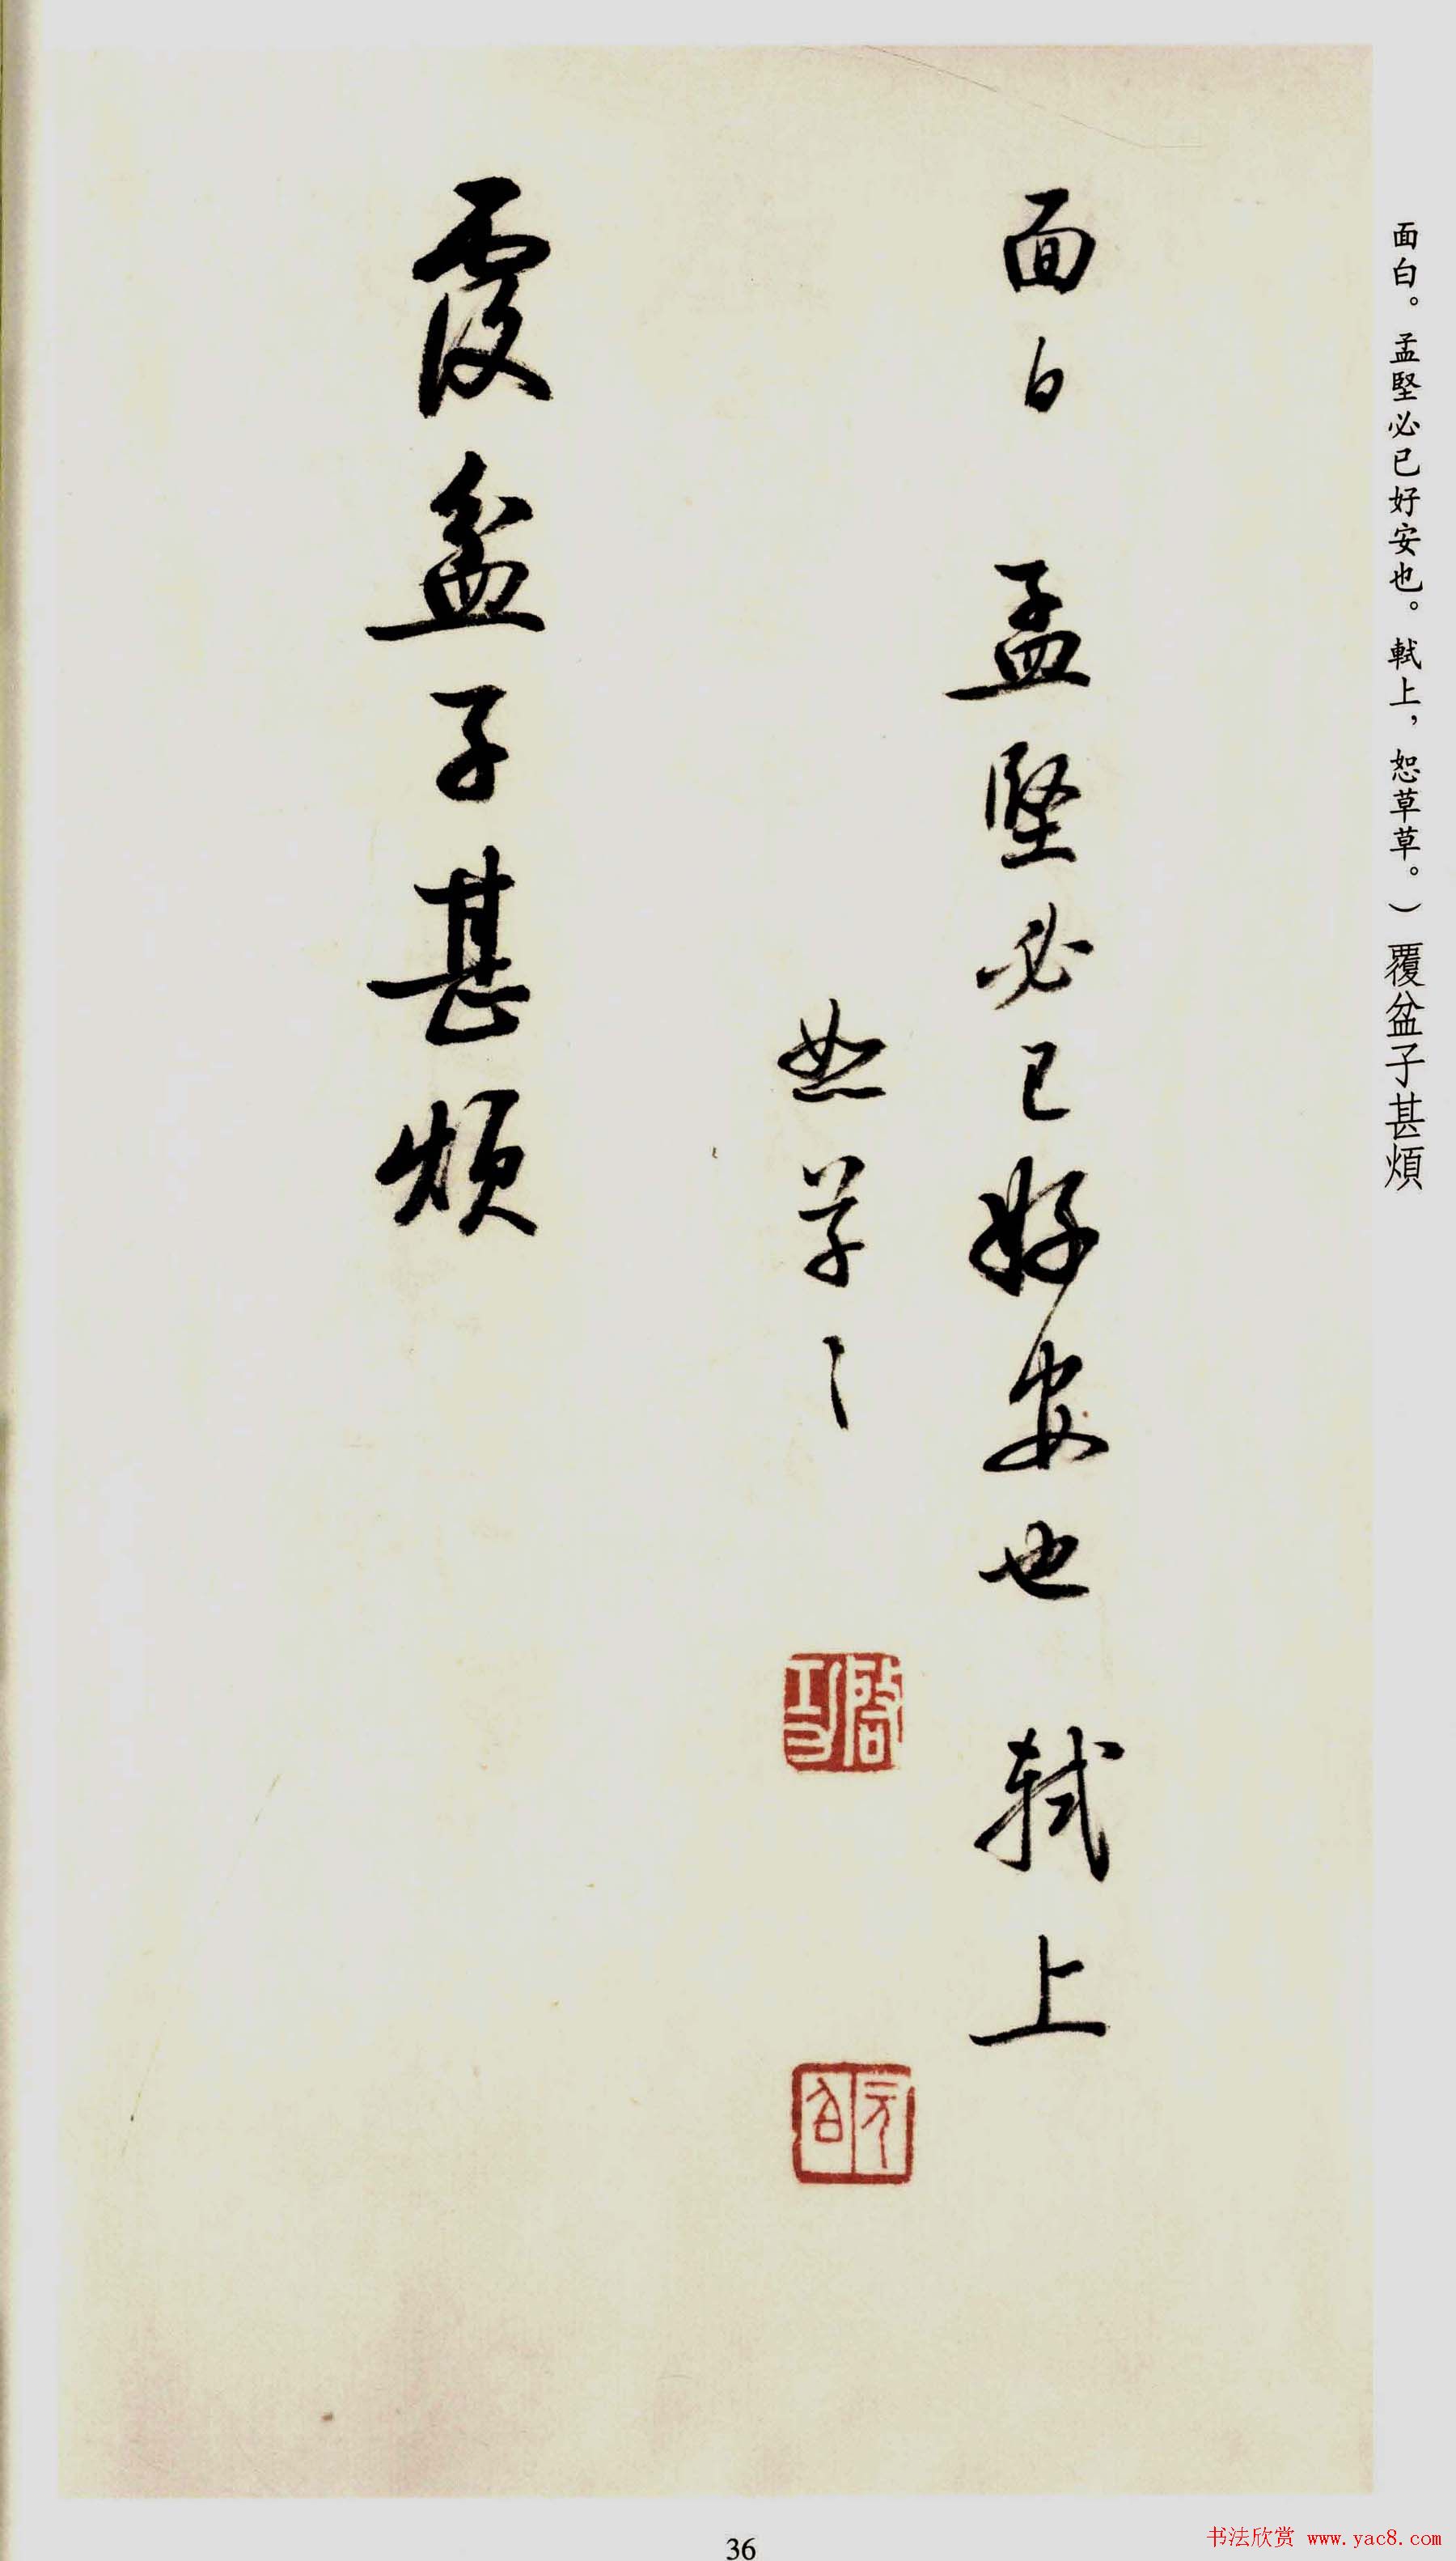 面白。孟堅必已好安也。軾上，恕草草。）覆盆子甚煩
面白 孟堅必已好安也 軾上
恕草〻
啓功
元白
覆盆子甚煩
36
书法欣赏 www.yac8.com